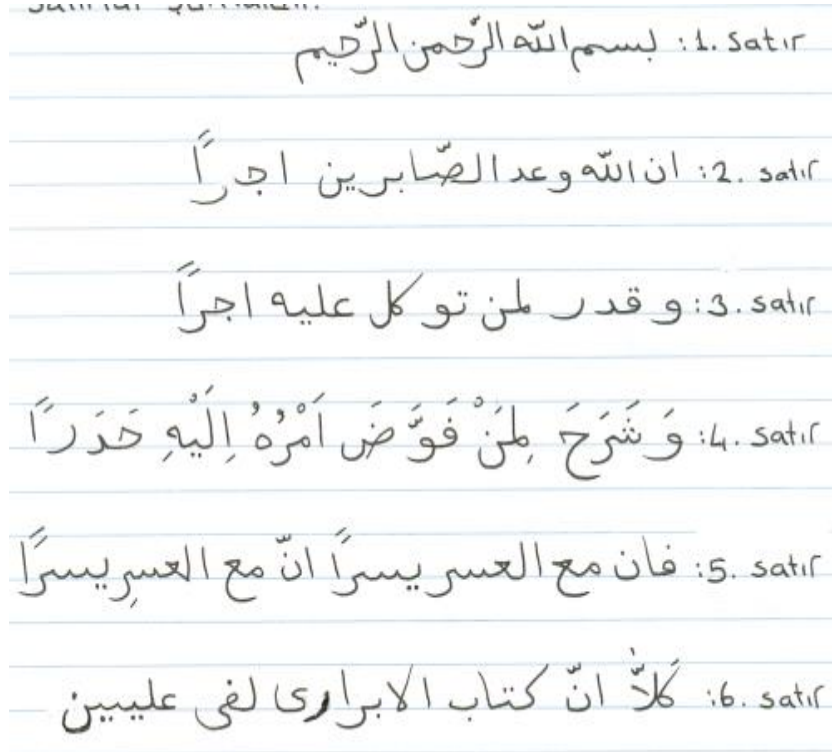 1. satır: بسم الله الرّحمن الرّحيم
2. satır: ان الله وعد الصّابرين اجراً
3. satır: و قدر لمن توكل عليه اجراً
4. satır: وَ شَرَحَ لِمَنْ فَوَّضَ اَمْرُهُ اِلَيْهِ حَدَراً
5. satır: فان مع العسر يسراً انّ مع العسرِ يسراً
6. satır: كَلاَّ انّ كتاب الابرارى لفى عليين